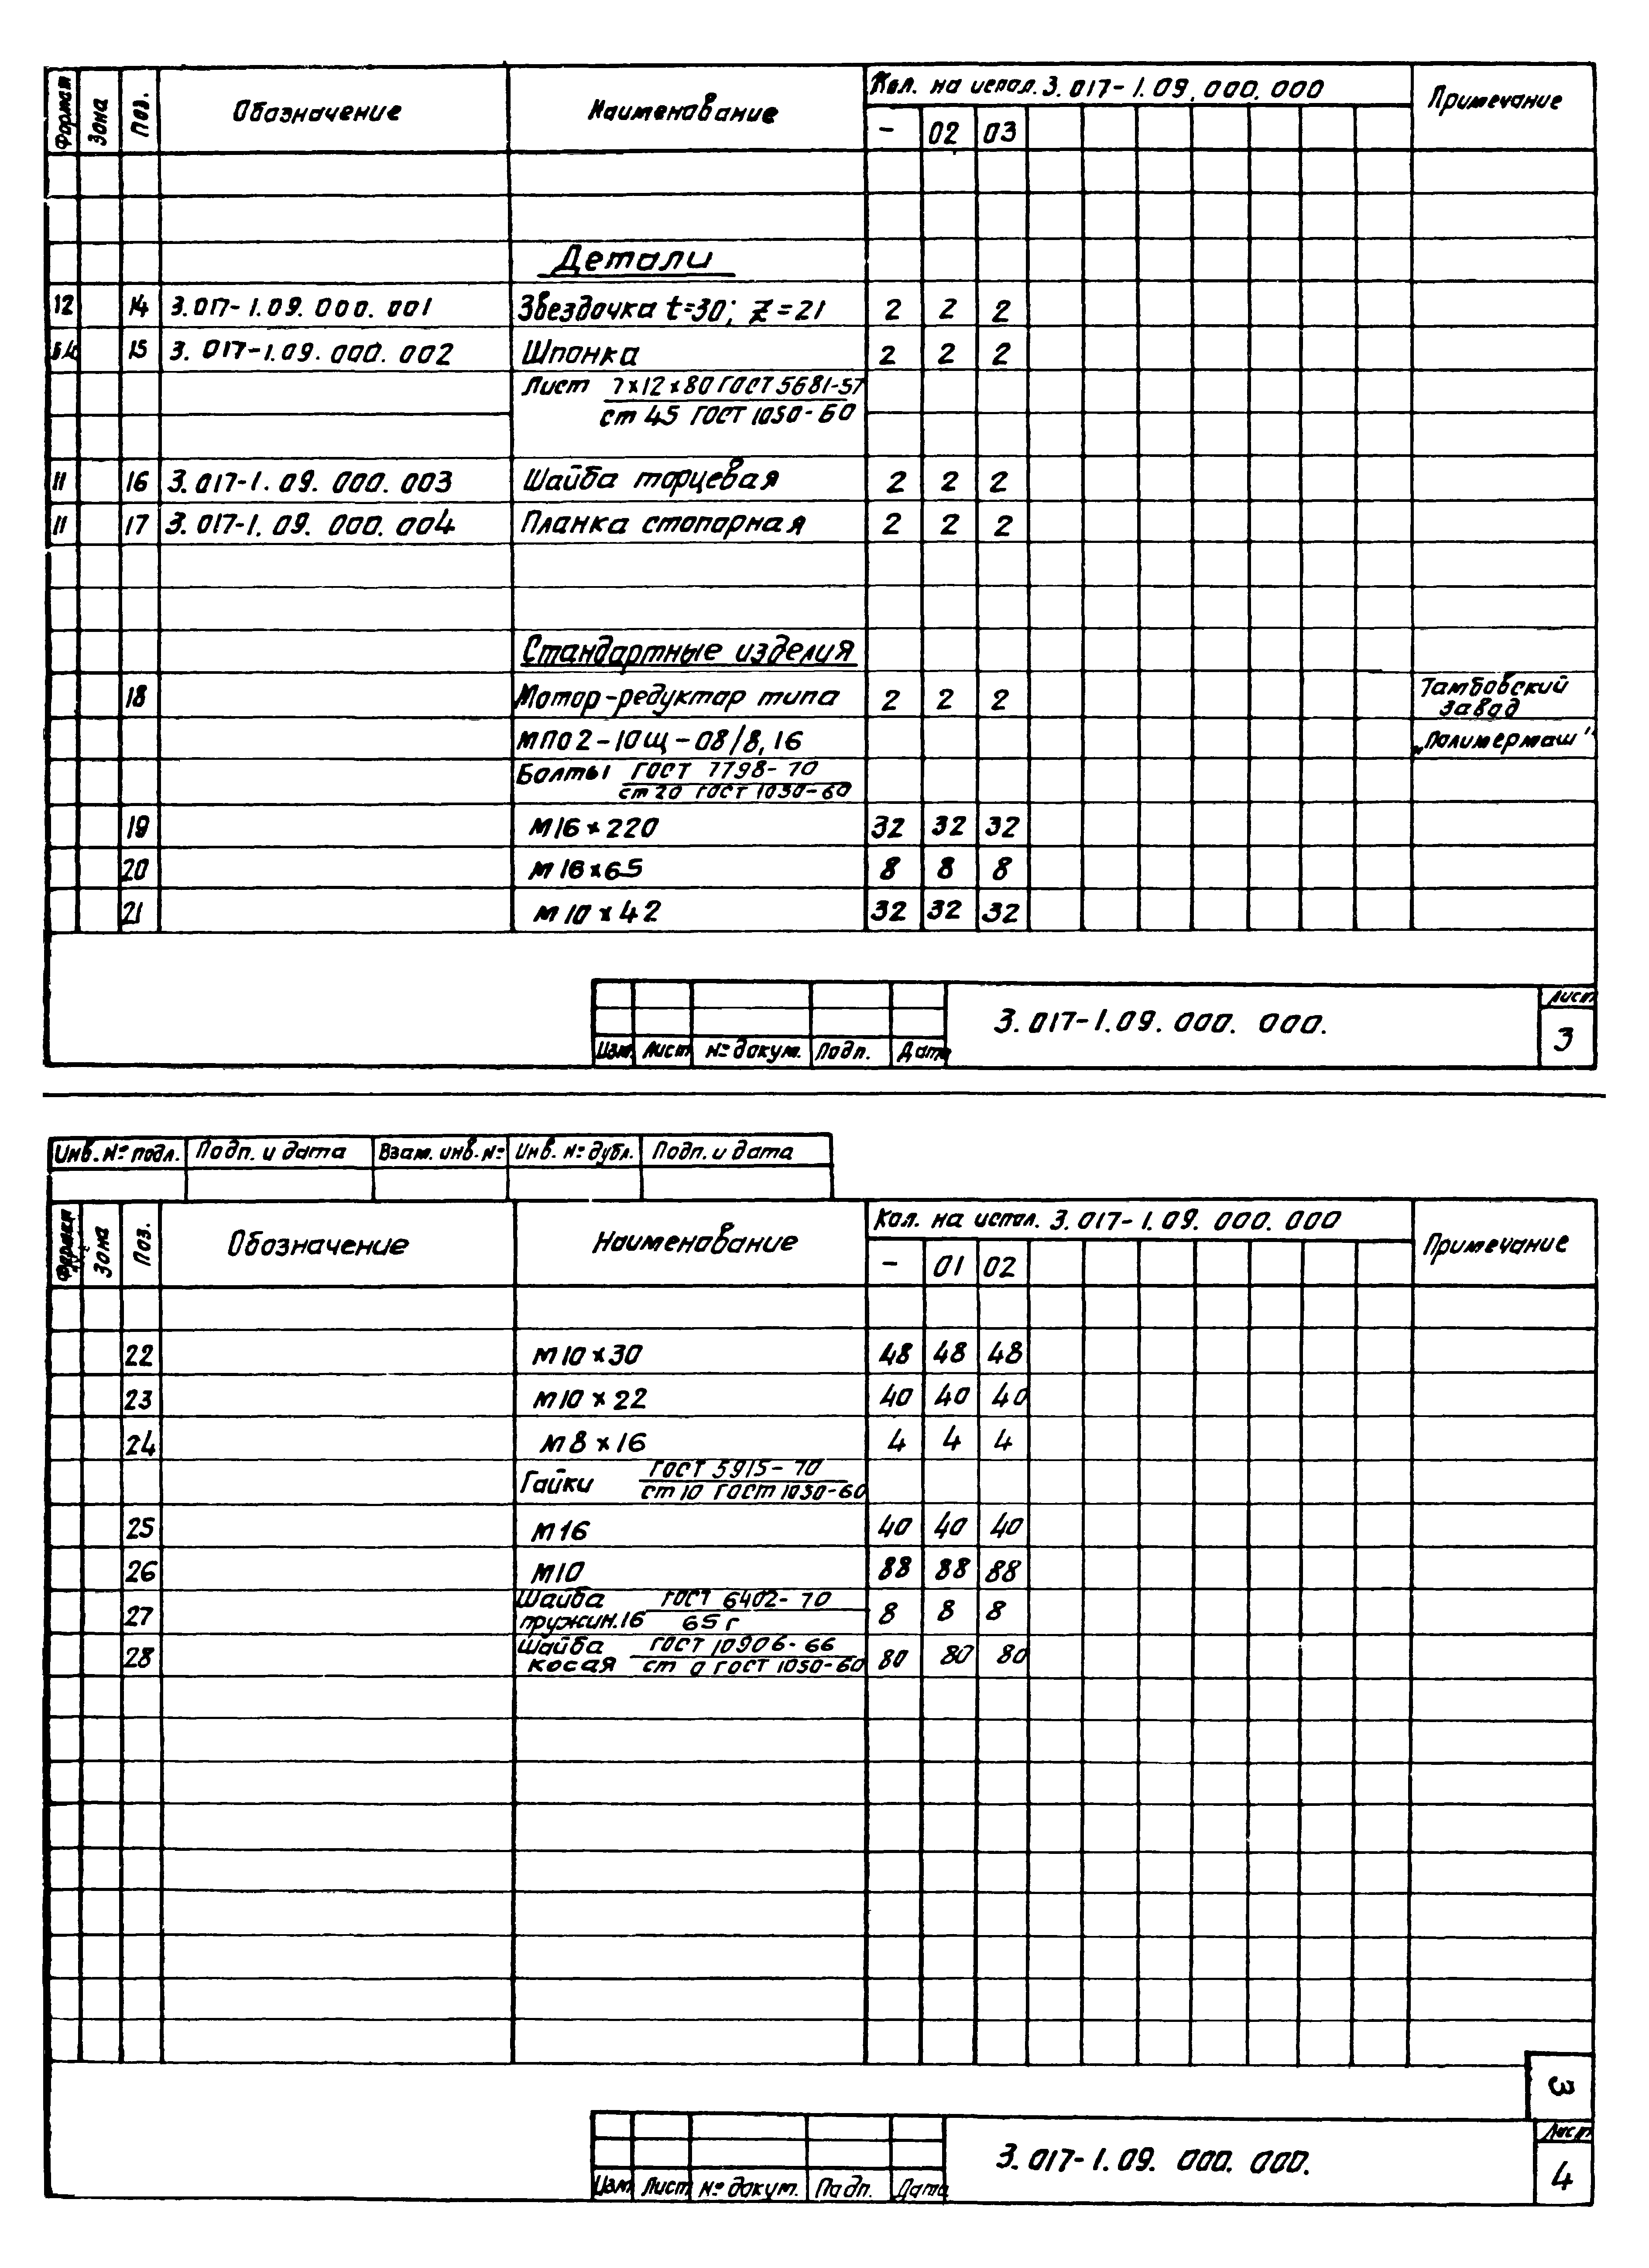 Формат Зона Поз. Обозначение Наименование Кол. на испол. 3.017-1.09.000.000 Примечание
- 02 03
Детали
12 14 3.017-1.09.000.001 Звездочка t=30; z=21 2 2 2
15 3.017-1.09.000.002 Шпонка 2 2 2
Лист 7х12х80 ГОСТ 5681-57
ст 45 ГОСТ 1050-60
11 16 3.017-1.09.000.003 Шайба торцевая 2 2 2
11 17 3.017-1.09.000.004 Планка стопорная 2 2 2
Стандартные изделия
18 Мотор-редуктор типа 2 2 2 Тамбовский завод
МПО2-10щ-08/8,16 „Полимермаш"
Болты ГОСТ 7798-70
ст 20 ГОСТ 1030-60
19 М16х220 32 32 32
20 М16х65 8 8 8
21 М10х42 32 32 32
3.017-1.09.000.000. Лист
3
Изм Лист № докум. Подп. Дата
Инв. № подл. Подп. и дата Взам. инв. № Инв. № дубл. Подп. и дата
Зона Поз. Обозначение Наименование Кол. на испол. 3.017-1.09.000.000 Примечание
- 01 02
22 М10х30 48 48 48
23 М10х22 40 40 40
24 М8х16 4 4 4
Гайки ГОСТ 5915-70
ст 10 ГОСТ 1030-60
25 М16 40 40 40
26 М10 88 88 88
27 Шайба ГОСТ 6402-70 8 8 8
пружин.16 65г
28 Шайба ГОСТ 10906-66 80 80 80
косая ст 0 ГОСТ 1050-60
3
3.017-1.09.000.000. Лист
4
Изм Лист № докум. Подп. Дата